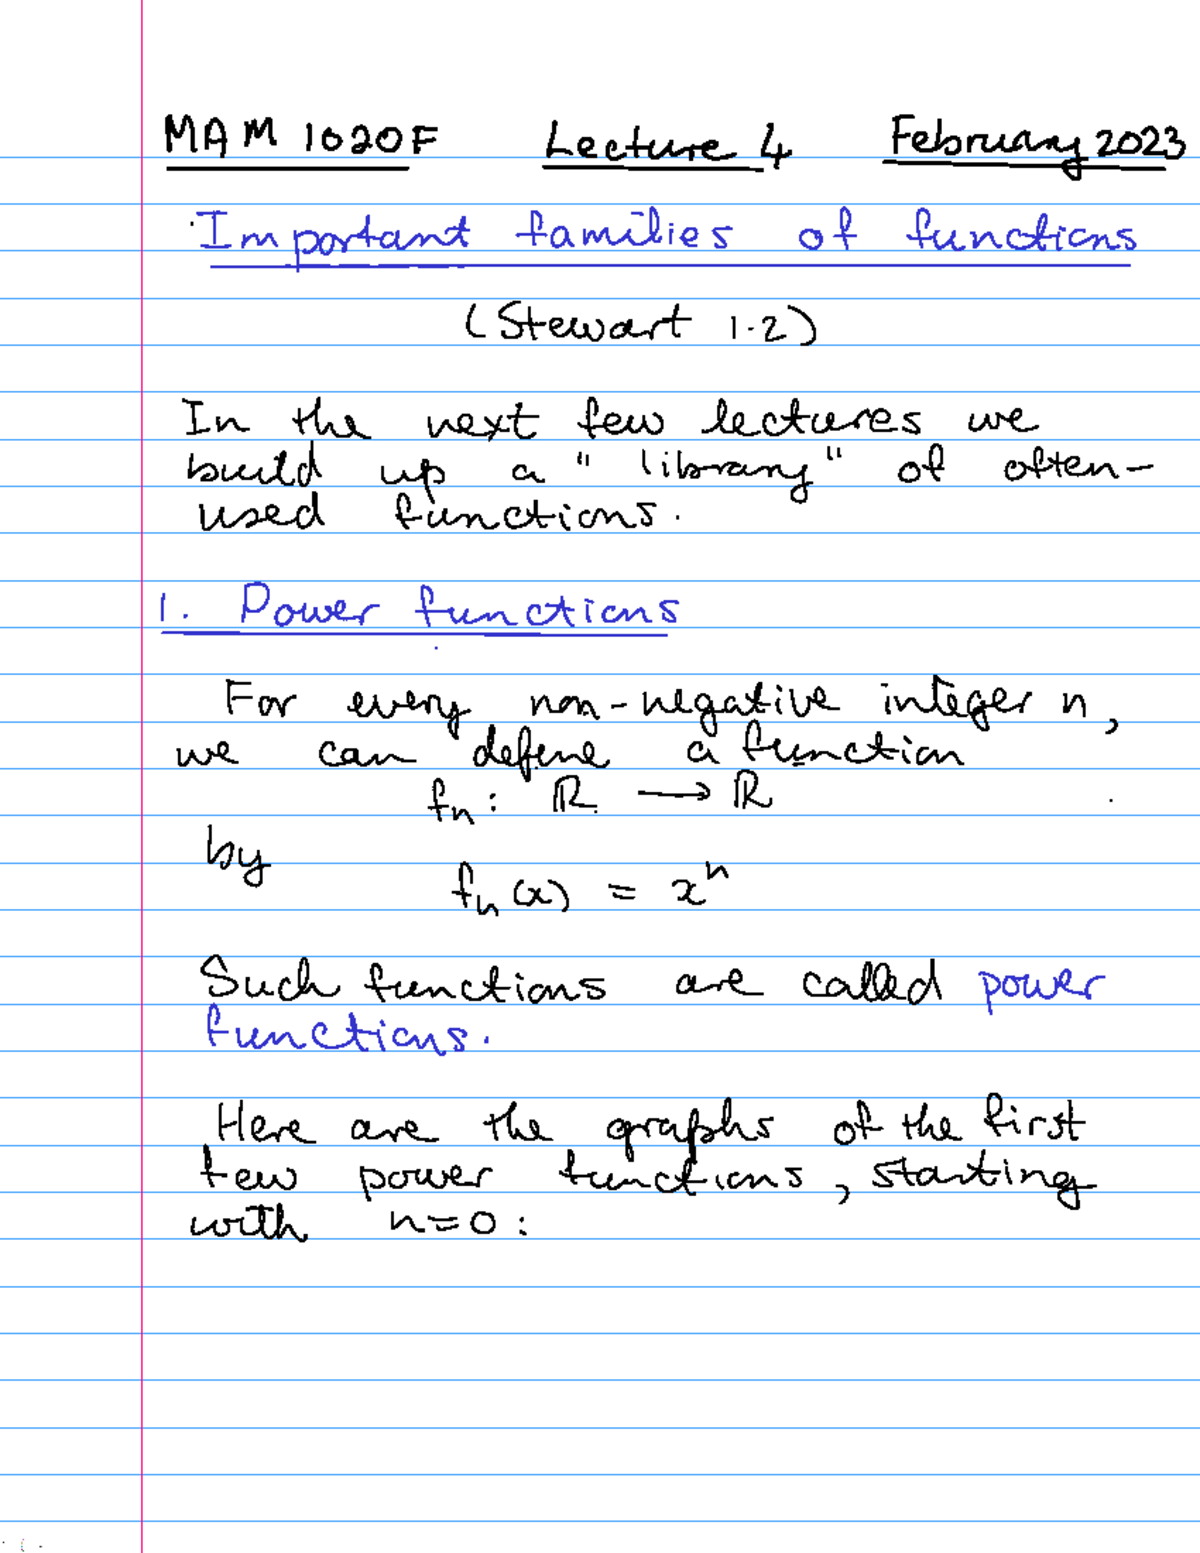 MAM 1020F Lecture 4 February 2023
Important families of functions
(Stewart 1.2)
In the next few lectures we
build up a "library" of often-
used functions.
1. Power functions
For every non-negative integer n,
we can define a function
fₙ: ℝ → ℝ
by
fₙ(x) = xⁿ
Such functions are called power
functions.
Here are the graphs of the first
few power functions, starting
with n=0: